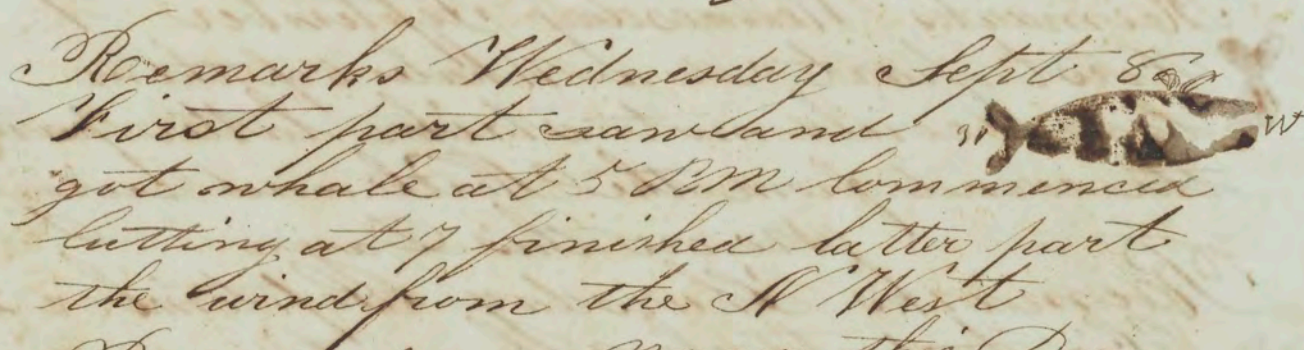 Remarks Wednesday Sept 8
First part saw and
got whale at 5 PM Commenced
Cutting at 7 finished latter part
the wind from the N West